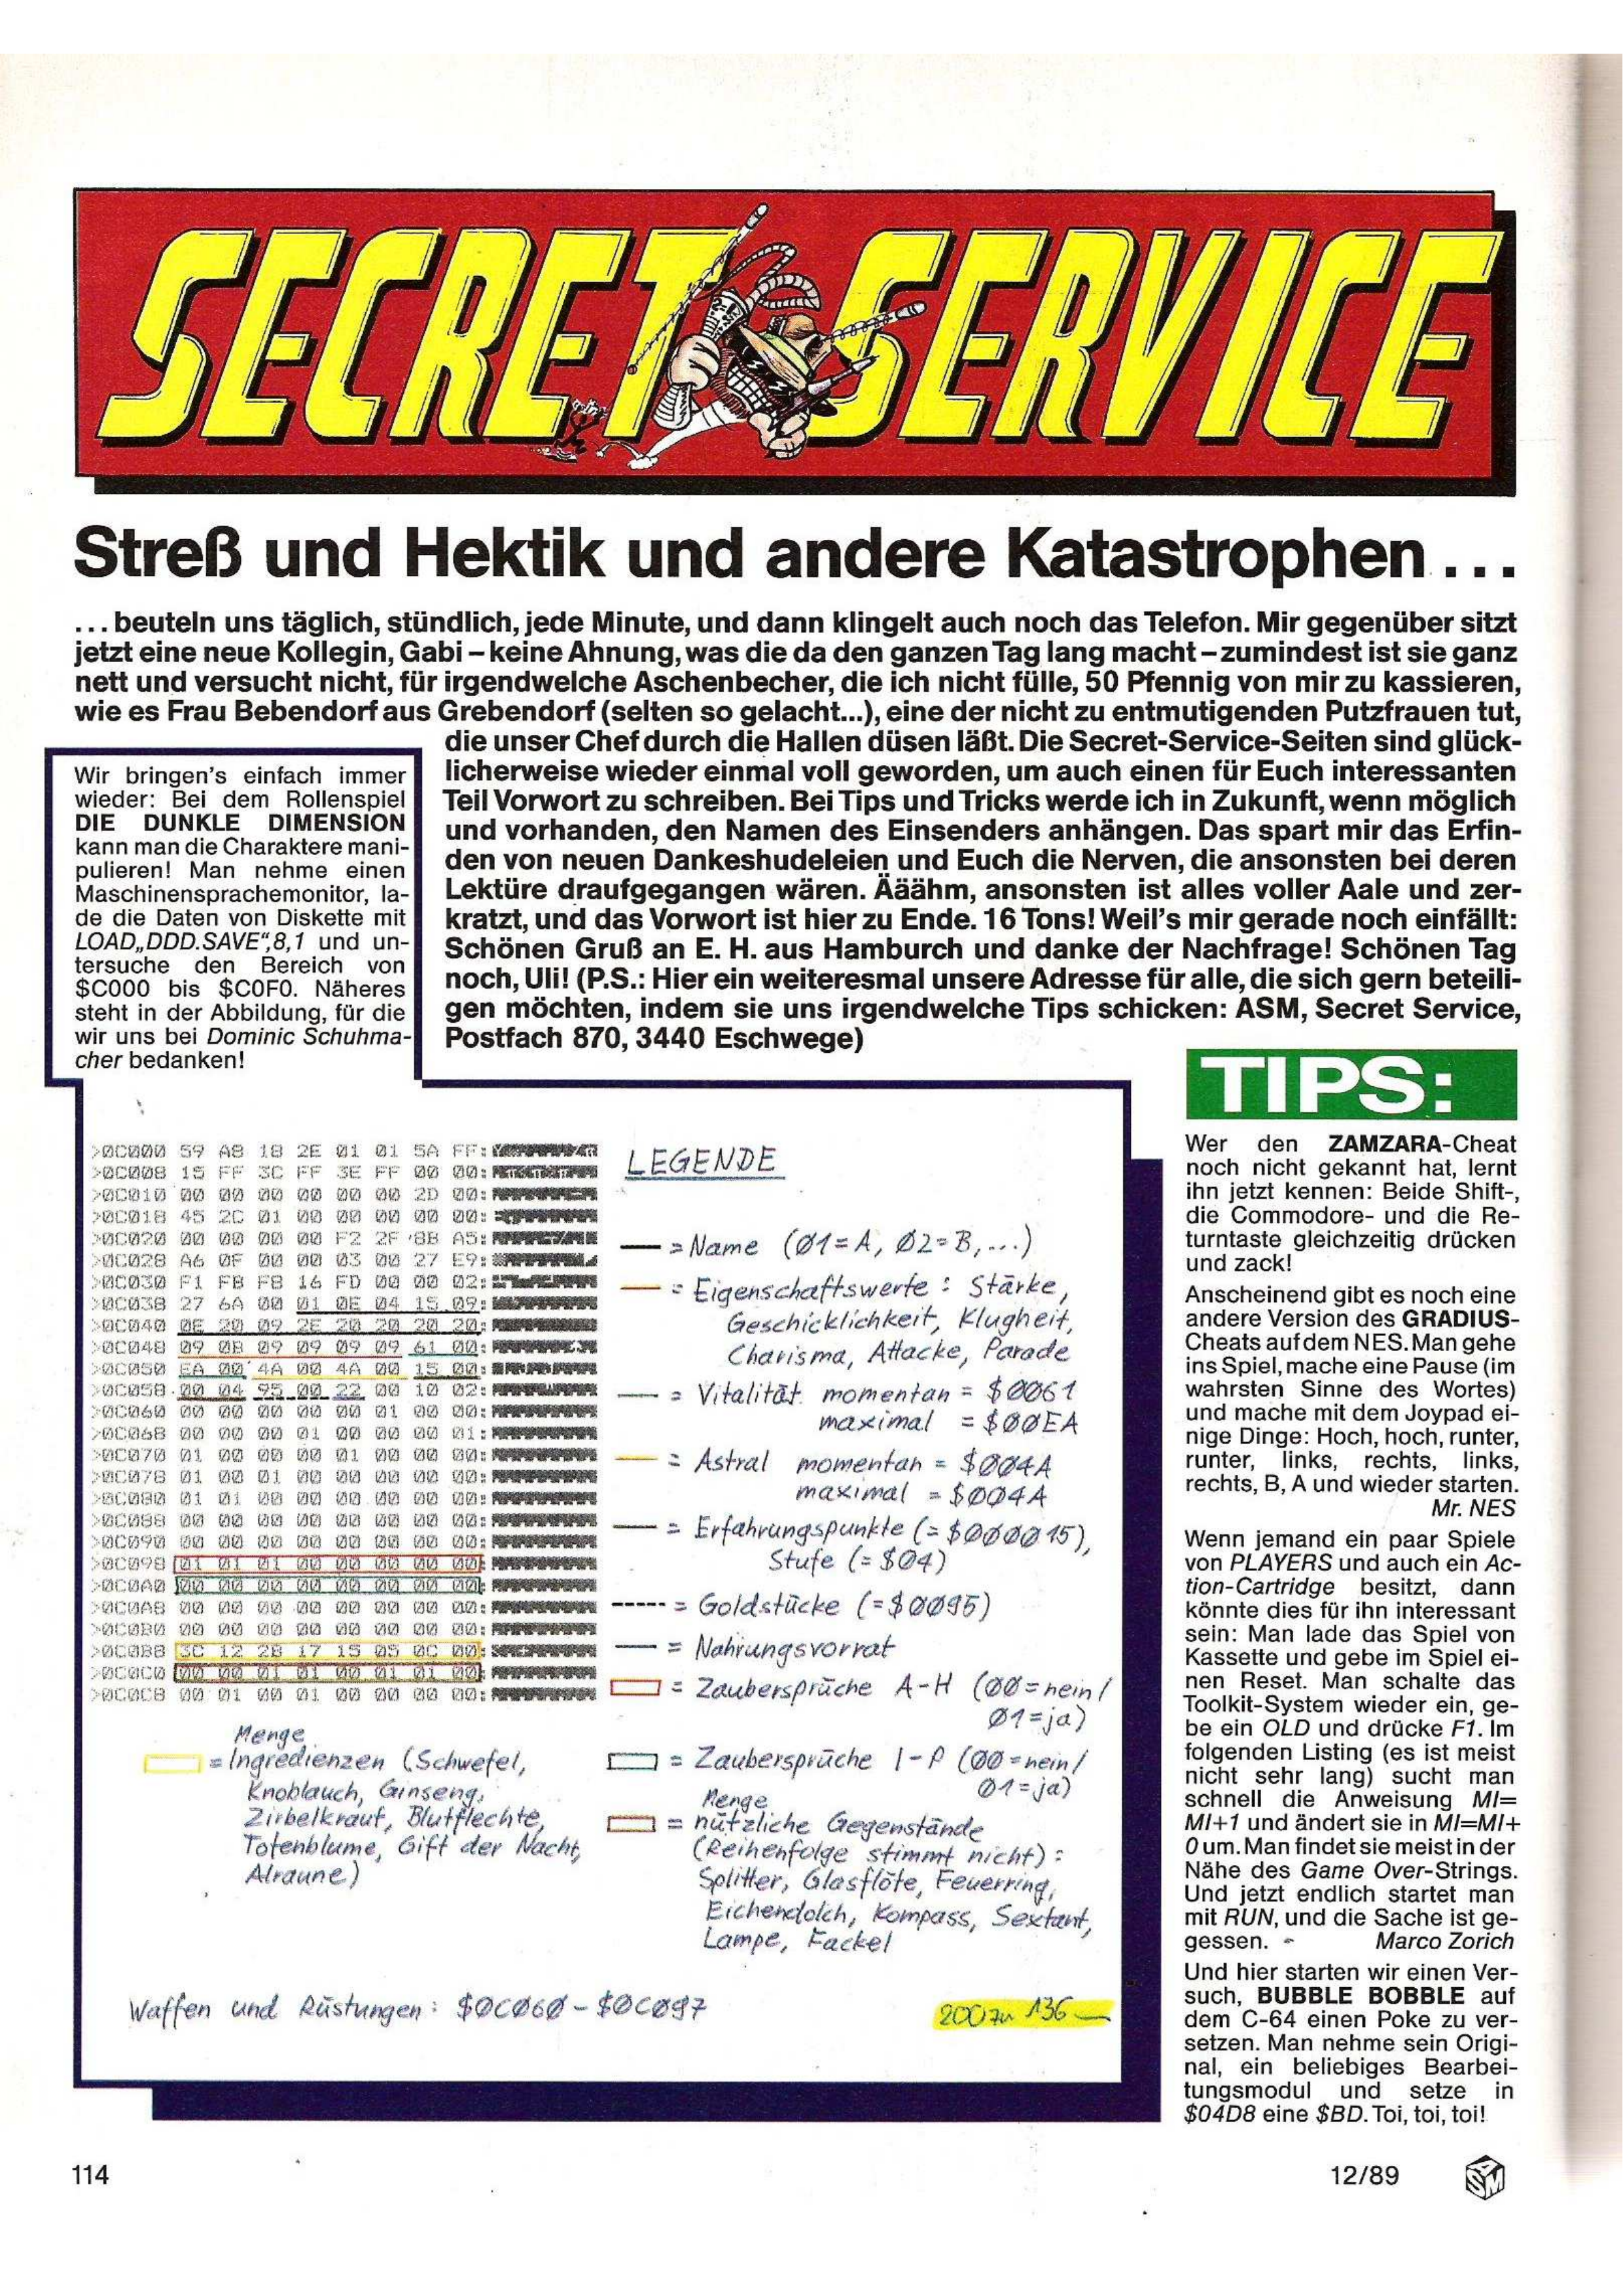 SECRET SERVICE
Streß und Hektik und andere Katastrophen ...
... beuteln uns täglich, stündlich, jede Minute, und dann klingelt auch noch das Telefon. Mir gegenüber sitzt
jetzt eine neue Kollegin, Gabi – keine Ahnung, was die da den ganzen Tag lang macht – zumindest ist sie ganz
nett und versucht nicht, für irgendwelche Aschenbecher, die ich nicht fülle, 50 Pfennig von mir zu kassieren,
wie es Frau Bebendorf aus Grebendorf (selten so gelacht...), eine der nicht zu entmutigenden Putzfrauen tut,
die unser Chef durch die Hallen düsen läßt. Die Secret-Service-Seiten sind glück-
licherweise wieder einmal voll geworden, um auch einen für Euch interessanten
Teil Vorwort zu schreiben. Bei Tips und Tricks werde ich in Zukunft, wenn möglich
und vorhanden, den Namen des Einsenders anhängen. Das spart mir das Erfin-
den von neuen Dankeshudeleien und Euch die Nerven, die ansonsten bei deren
Lektüre draufgegangen wären. Ääähm, ansonsten ist alles voller Aale und zer-
kratzt, und das Vorwort ist hier zu Ende. 16 Tons! Weil's mir gerade noch einfällt:
Schönen Gruß an E. H. aus Hamburch und danke der Nachfrage! Schönen Tag
noch, Uli! (P.S.: Hier ein weiteresmal unsere Adresse für alle, die sich gern beteili-
gen möchten, indem sie uns irgendwelche Tips schicken: ASM, Secret Service,
Postfach 870, 3440 Eschwege)
Wir bringen's einfach immer
wieder: Bei dem Rollenspiel
DIE DUNKLE DIMENSION
kann man die Charaktere mani-
pulieren! Man nehme einen
Maschinensprachemonitor, la-
de die Daten von Diskette mit
LOAD„DDD.SAVE“,8,1 und un-
tersuche den Bereich von
$C000 bis $C0F0. Näheres
steht in der Abbildung, für die
wir uns bei Dominic Schuhma-
cher bedanken!
>0C000 59 A8 18 2E 01 01 5A FF:
>0C008 15 FF 3C FF 3E FF 00 00:
>0C010 00 00 00 00 00 00 2D 00:
>0C018 45 2C 01 00 00 00 00 00:
>0C020 00 00 00 00 F2 2F 8B A5:
>0C028 A6 0F 00 00 03 00 27 E9:
>0C030 F1 FB FB 16 FD 00 00 02:
>0C038 27 6A 00 01 0E 04 15 09:
>0C040 0E 20 09 2E 20 20 20 20:
>0C048 09 0B 09 09 09 09 61 00:
>0C050 EA 00 4A 00 4A 00 15 00:
>0C058 00 04 95 00 22 00 10 02:
>0C060 00 00 00 00 00 01 00 00:
>0C068 00 00 00 01 00 00 00 01:
>0C070 01 00 00 00 01 00 00 00:
>0C078 01 00 01 00 00 00 00 00:
>0C080 01 01 00 00 00 00 00 00:
>0C088 00 00 00 00 00 00 00 00:
>0C090 00 00 00 00 00 00 00 00:
>0C098 01 01 01 00 00 00 00 00:
>0C0A0 00 00 00 00 00 00 00 00:
>0C0A8 00 00 00 00 00 00 00 00:
>0C0B0 00 00 00 00 00 00 00 00:
>0C0B8 3C 12 2B 17 15 05 0C 00:
>0C0C0 00 00 01 01 00 01 01 00:
>0C0C8 00 01 00 01 00 00 00 00:
LEGENDE
= Name (01=A, 02=B,...)
= Eigenschaftswerte: Stärke,
Geschicklichkeit, Klugheit,
Charisma, Attacke, Parade
= Vitalität momentan = $0061
maximal = $00EA
= Astral momentan = $004A
maximal = $004A
= Erfahrungspunkte (=$000015),
Stufe (=$04)
= Goldstücke (=$0095)
= Nahrungsvorrat
= Zaubersprüche A-H (00=nein/
01=ja)
= Zaubersprüche I-P (00=nein/
01=ja)
Menge
= nützliche Gegenstände
(Reihenfolge stimmt nicht):
Splitter, Glasflöte, Feuerring,
Eichendolch, Kompass, Sextant,
Lampe, Fackel
Menge
= Ingredienzen (Schwefel,
Knoblauch, Ginseng,
Zirbelkraut, Blutflechte,
Totenblume, Gift der Nacht,
Alraune)
Waffen und Rüstungen: $0C060-$0C097
200 zu 136
TIPS:
Wer den ZAMZARA-Cheat
noch nicht gekannt hat, lernt
ihn jetzt kennen: Beide Shift-,
die Commodore- und die Re-
turntaste gleichzeitig drücken
und zack!
Anscheinend gibt es noch eine
andere Version des GRADIUS-
Cheats auf dem NES. Man gehe
ins Spiel, mache eine Pause (im
wahrsten Sinne des Wortes)
und mache mit dem Joypad ei-
nige Dinge: Hoch, hoch, runter,
runter, links, rechts, links,
rechts, B, A und wieder starten.
Mr. NES
Wenn jemand ein paar Spiele
von PLAYERS und auch ein Ac-
tion-Cartridge besitzt, dann
könnte dies für ihn interessant
sein: Man lade das Spiel von
Kassette und gebe im Spiel ei-
nen Reset. Man schalte das
Toolkit-System wieder ein, ge-
be ein OLD und drücke F1. Im
folgenden Listing (es ist meist
nicht sehr lang) sucht man
schnell die Anweisung MI=
MI+1 und ändert sie in MI=MI+
0 um. Man findet sie meist in der
Nähe des Game Over-Strings.
Und jetzt endlich startet man
mit RUN, und die Sache ist ge-
gessen. Marco Zorich
Und hier starten wir einen Ver-
such, BUBBLE BOBBLE auf
dem C-64 einen Poke zu ver-
setzen. Man nehme sein Origi-
nal, ein beliebiges Bearbei-
tungsmodul und setze in
$04D8 eine $BD. Toi, toi, toi!
114
12/89
ASM